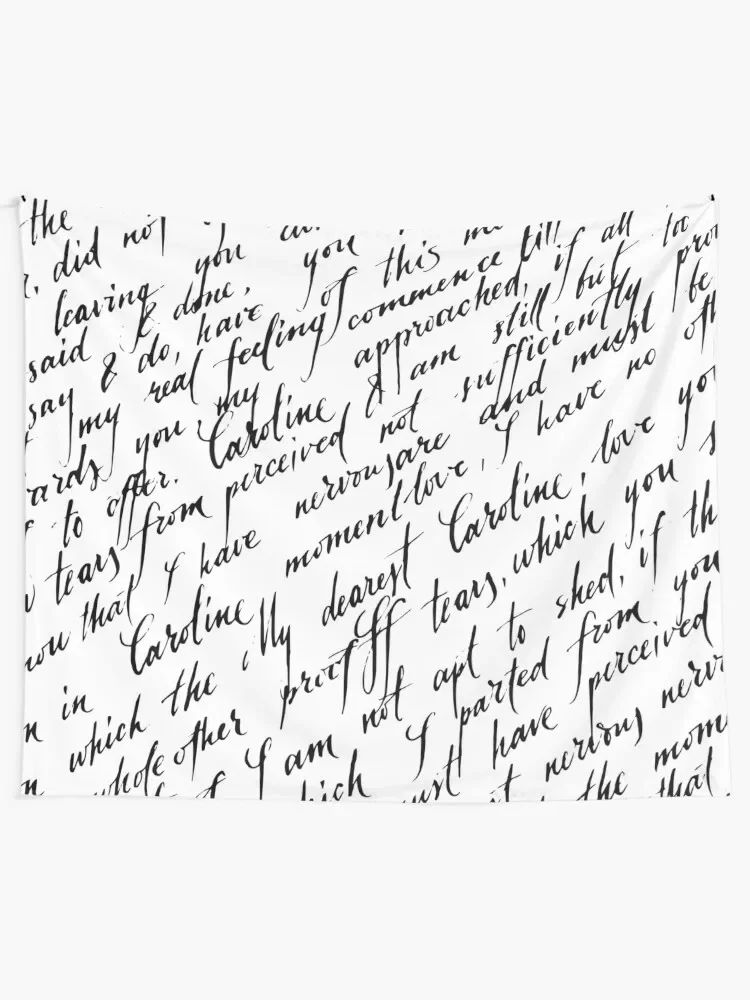 the
did not
leaving you
said & done, you
say & do, have of this
my real feeling commence till
ards you, my approached, if all
to offer. Caroline I am still but
tears from perceived not sufficiently
ou that I have nervous are and must be
moment love, I have no
in Caroline My dearest Caroline, love
which the proof tears, which you
whole other I am not apt to shed, if
which I parted from you
ust have perceived
nervous
the mom
that